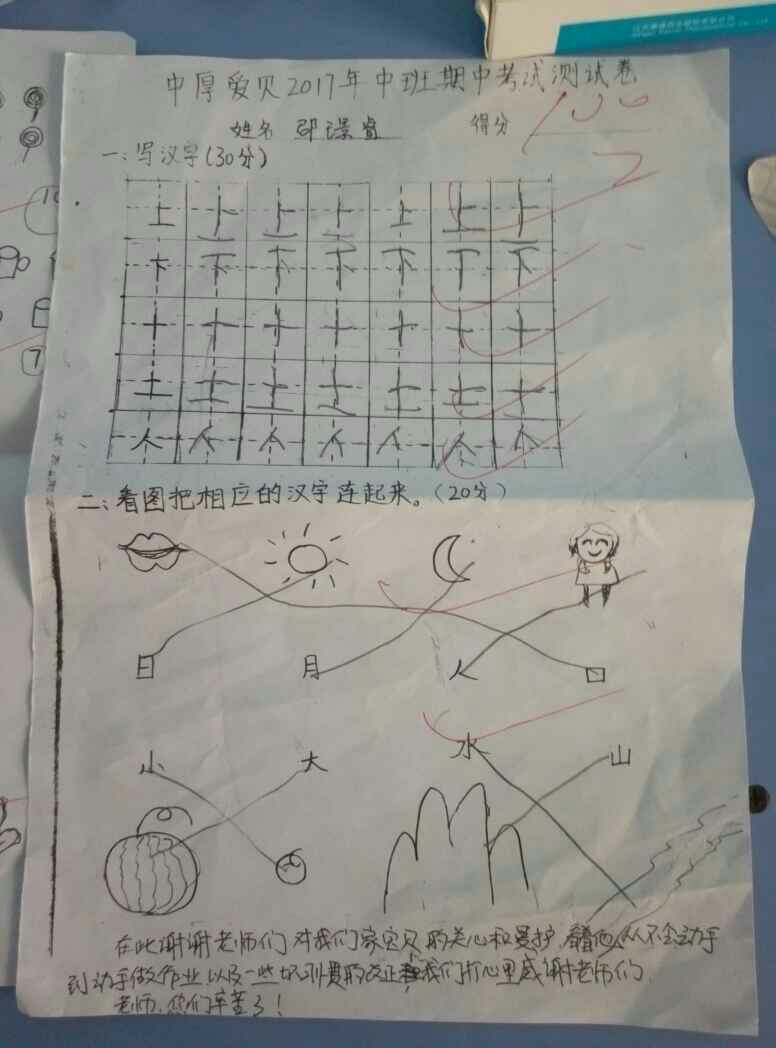 中厚爱贝2017年中班期中考试测试卷
姓名 邵璟睿 得分 100
一:写汉字(30分)
上 上 上 上 上 上 上
下 下 下 下 下 下 下
十 十 十 十 十 十 十
土 土 土 土 土 土 土
个 个 个 个 个 个 个
二:看图把相应的汉字连起来。(20分)
日 月 人 口
小 大 水 山
在此谢谢老师们对我们家宝贝的关心和爱护,看着他从不会动手
到动手做作业,以及一些坏习惯的改正,我们打心里感谢老师们
老师,你们辛苦了!